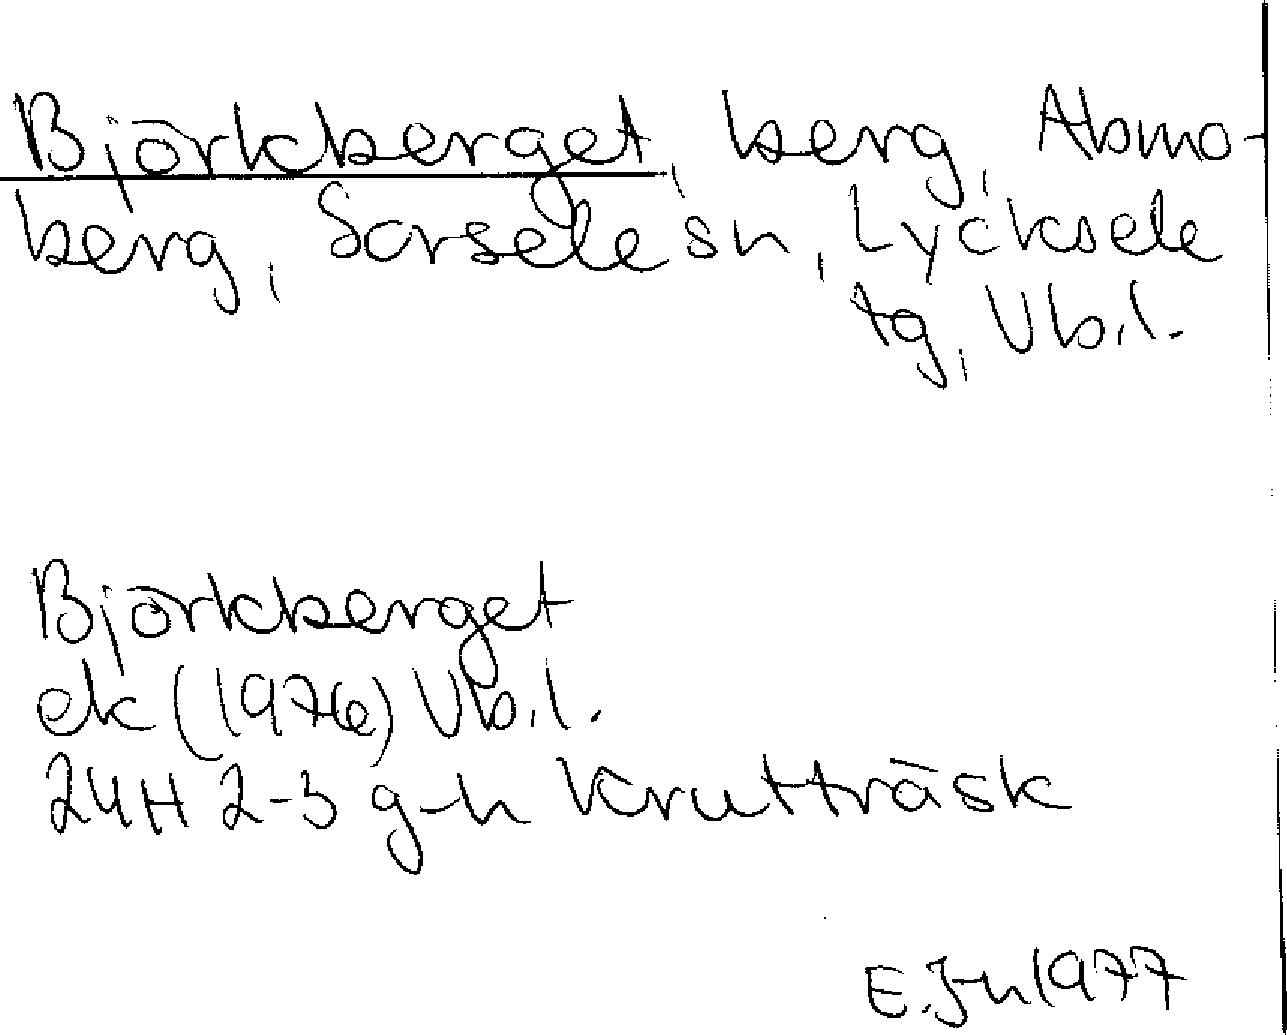 Björkberget, berg, Abmo-
berg, Sorsele sn, Lycksele
tg, Vb.l.
Björkberget
ek (1976) Vb.l.
24H 2-3 g-h Krutträsk
E.Jn 1977